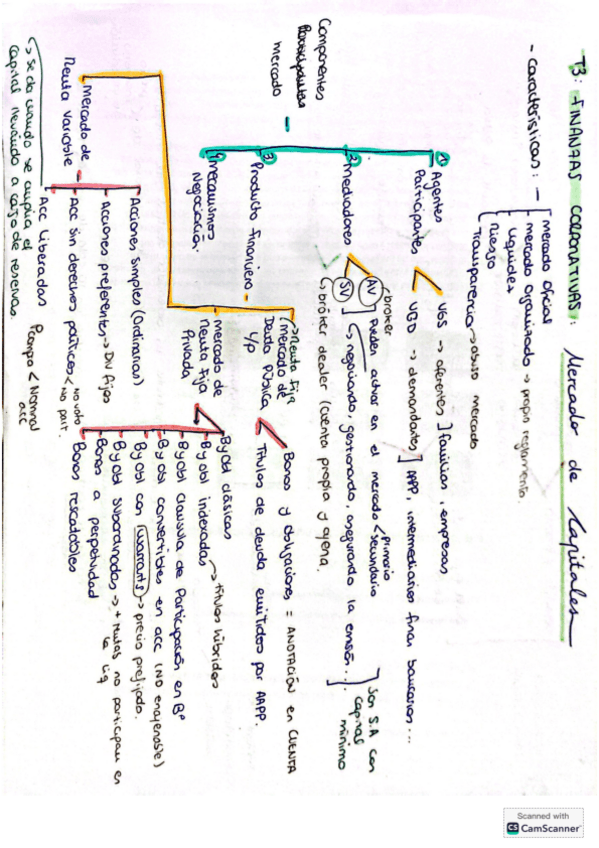 T3: FINANZAS CORPORATIVAS: Mercado de Capitales
- Características: -
mercado oficial
mercado organizado → propio reglamento.
Liquidez
Riesgo
Transparencia → abuso mercado
Componentes
mercado
① Agentes
Participantes
UGS → oferentes ] familias, empresas
UGD → demandantes ] AAPP, intermediarios finan bancarios...
② mediadores
broker
AV
SV
Pueden actuar en el mercado < primario
secundario
↳ negociando, gestionando, asegurando la emisión...
↳ bróker dealer (cuenta propia y ajena.
Son S.A con
capital
mínimo
③ Producto financiero -
④ mecanismos
Negociación.
→ Renta fija
mercado de
Deuda Pública
Bonos y obligaciones = ANOTACIÓN EN CUENTA
Títulos de deuda emitidos por AAPP.
- mercado de
Renta fija
Privada
By obl clásicas
By obl indexadas
→ títulos híbridos
By obl clausula de Participación en Bº
By obl convertibles en acc (NO enajenable)
By obl con warrants → precio prefijado.
By obl subordinadas → + rentas no participan en
la liq
Bonos a perpetuidad
Bonos rescatables
mercado de
Renta Variable
Acciones simples (ordinarias)
Acciones preferentes → DIV fijos
Acc sin derechos políticos < No voto
No part.
Acc Liberadas
↳ se da cuando se amplia el
capital llevándo a cargo de reservas.